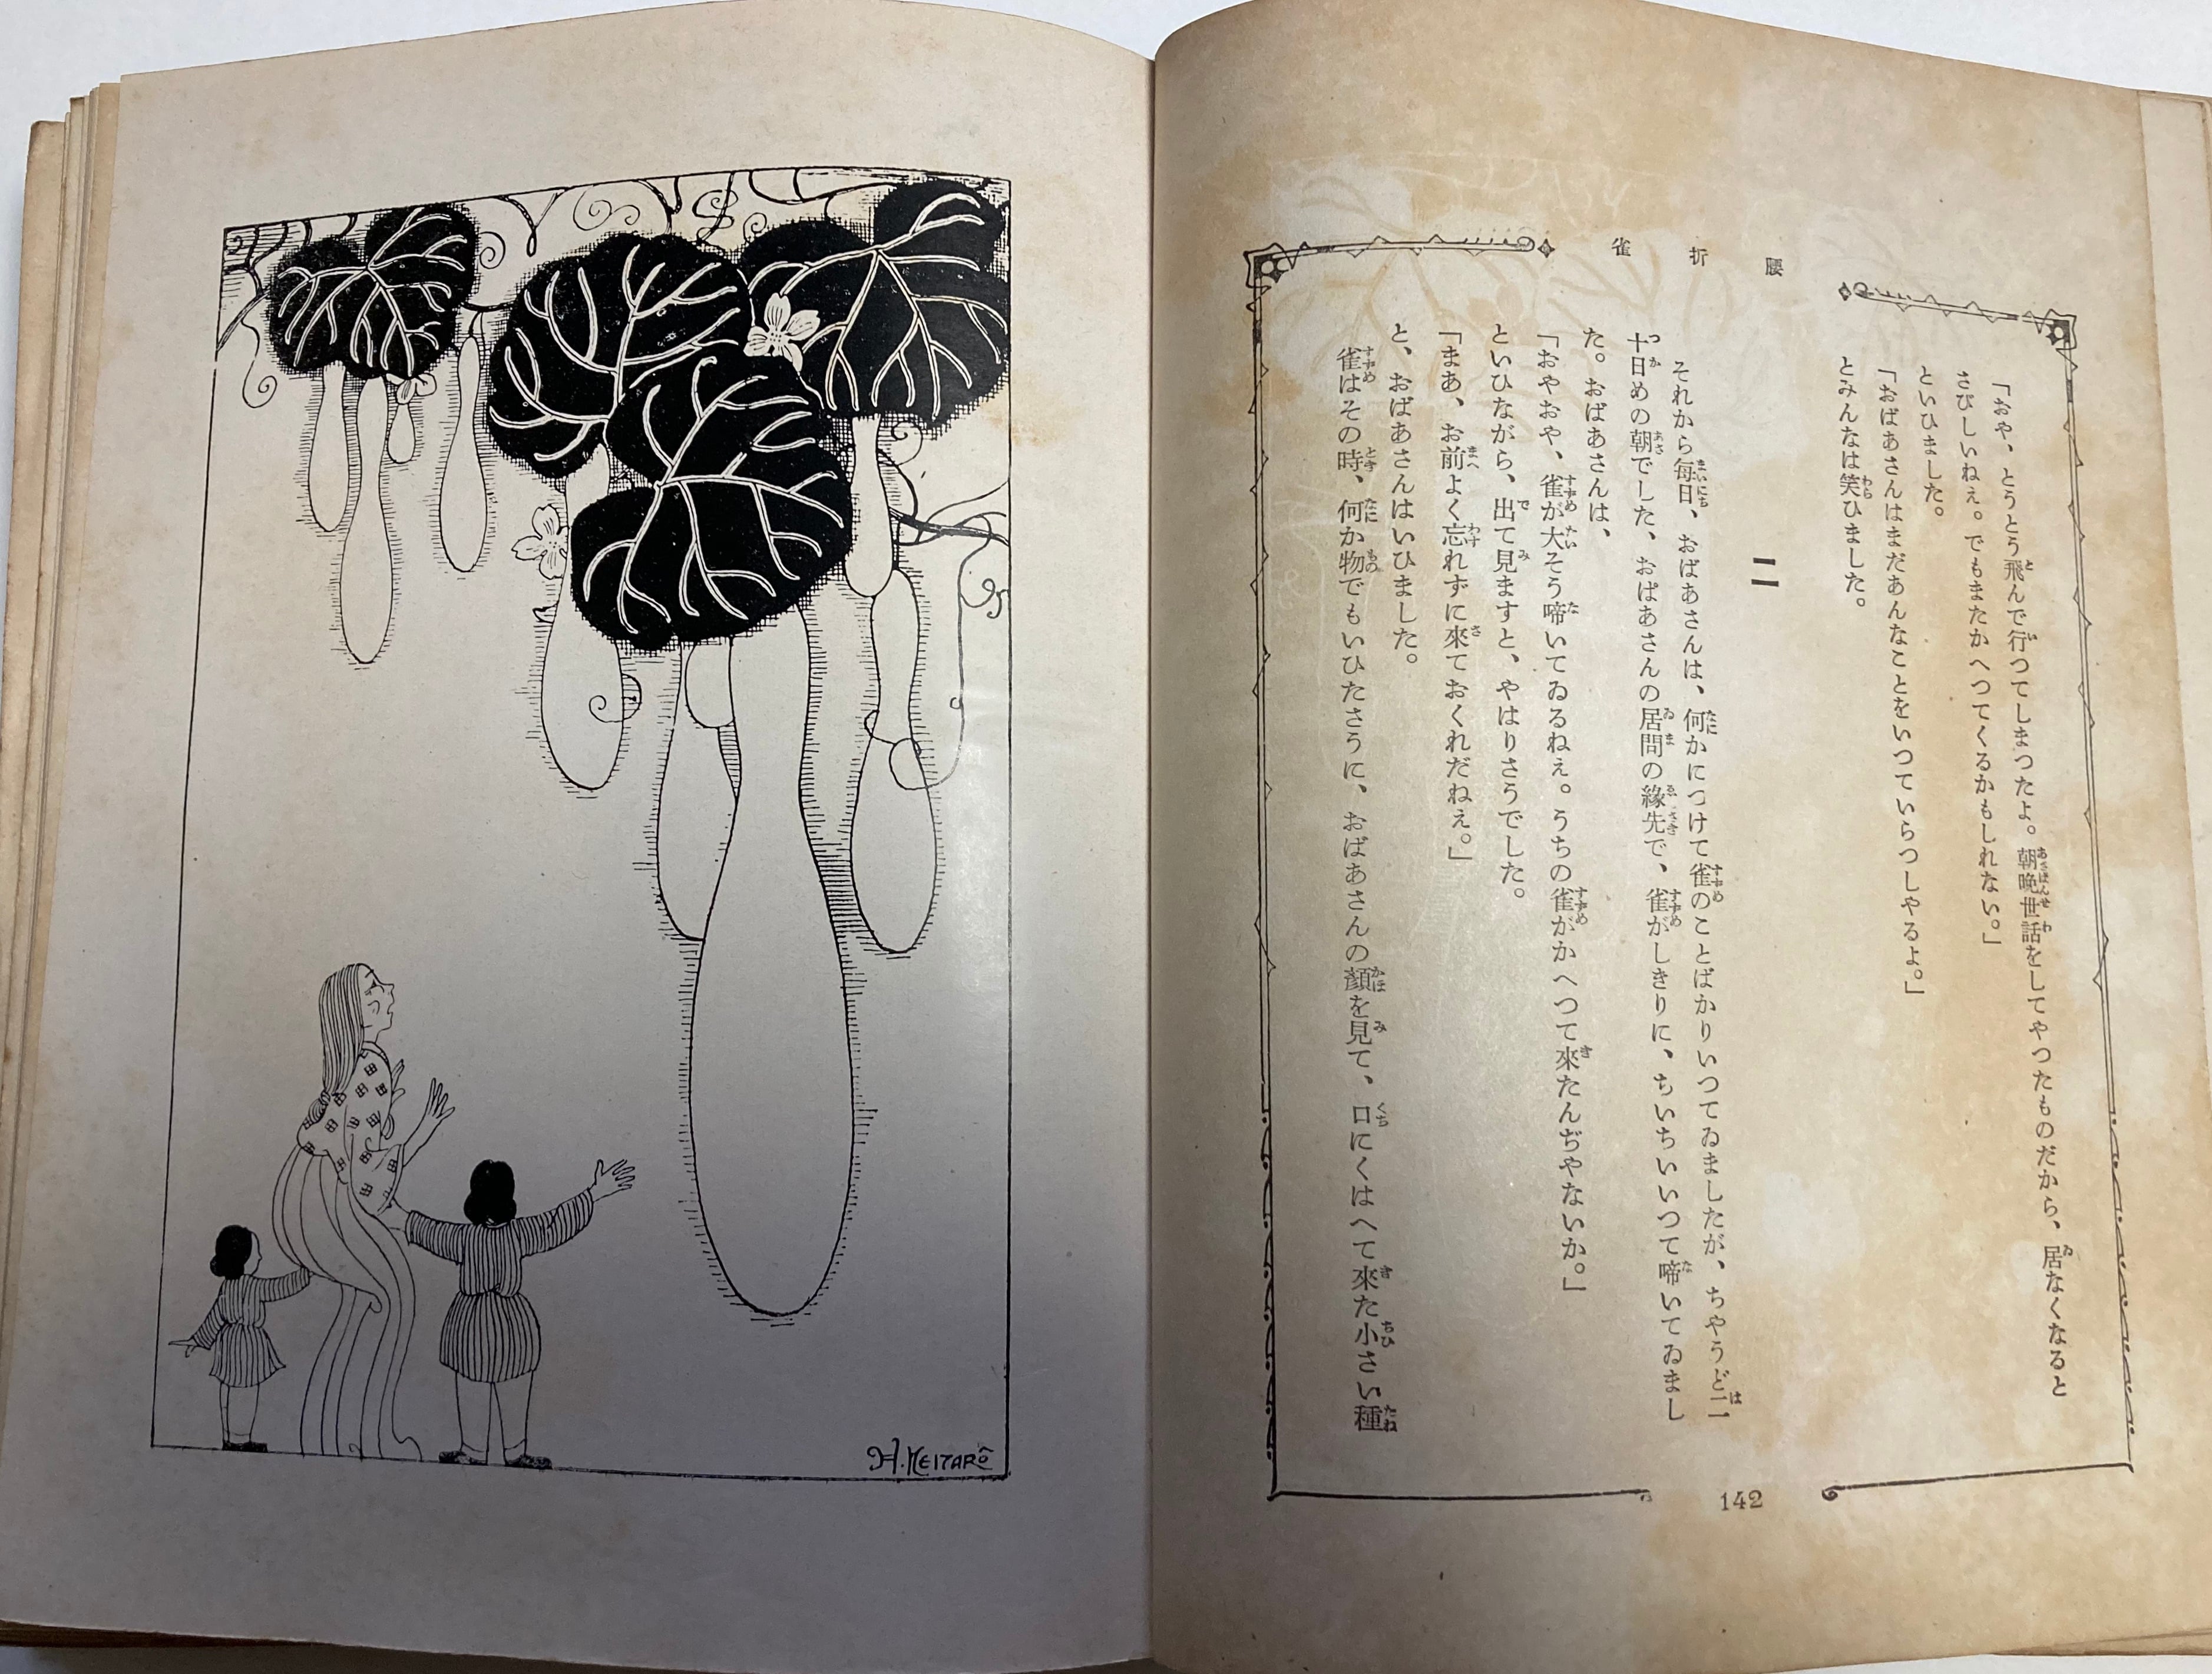 腰折雀
「おや、とうとう飛んで行つてしまつたよ。朝晩世話をしてやつたものだから、居なくなると
さびしいねぇ。でもまたかへつてくるかもしれない。」
といひました。
「おばあさんはまだあんなことをいつていらつしやるよ。」
とみんなは笑ひました。
二
それから毎日、おばあさんは、何かにつけて雀のことばかりいつてゐましたが、ちやうど二
十日めの朝でした、おばあさんの居間の緣先で、雀がしきりに、ちいちいいつて啼いてゐまし
た。おばあさんは、
「おやおや、雀が大そう啼いてゐるねぇ。うちの雀がかへつて來たんぢやないか。」
といひながら、出て見ますと、やはりさうでした。
「まあ、お前よく忘れずに來ておくれだねぇ。」
と、おばあさんはいひました。
雀はその時、何か物でもいひたさうに、おばあさんの顏を見て、口にくはへて來た小さい種
142
H.KEITARÔ